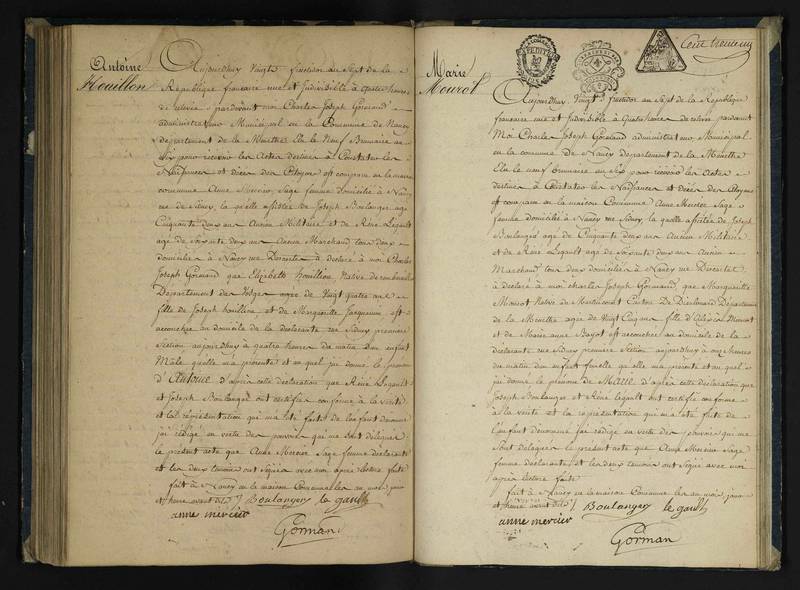 Antoine
Houillon
Aujourdhuy Vingt fructidor au Sept de la
Republique francaise une et Indivisible à quatre heures
de relevée pardevant moi Charles Joseph Gormand
administrateur Municipal en la Commune de Nancy
departement de la Meurthe Elu le Neuf Brumaire au
Six pour recevoir les Actes destinés à Constater les
Naissances et deces des Citoyens est comparue en la maison
commune Anne Mercier Sage femme domiciliée à Nancy
rue de Sidney, la qu'elle assistée de Joseph Boulanger agé
Cinquante deux ans Ancien Militaire et de Réné Legault
agé de Soixante deux ans Ancien Marchand tous deux
domiciliés à Nancy rue à declaré à moi Charles
Joseph Gormand que Elizabeth houillon Native de
Departement des Vosges agée de Vingt quatre ans
fille de Joseph houillon et de Marguerite Jacquemin est
accouchée au domicile de la declarante rue Sidney premiere
Section aujourdhuy à quatre heures du matin d'un Enfant
Male qu'elle m'a présenté et au quel jai donné le prenom
d'Antoine d'après cette déclaration que Réné Legault
et Joseph Boulanger ont certifiée conforme à la vérité
et la représentation qui m'a été faite de l'enfant denommé
jai rédigé en vertu des pouvoirs qui me sont délégués
le present acte que Anne Mercier Sage femme declarante
et les deux temoins ont Signé avec moi après lecture faite
fait à Nancy en la maison Communale les an mois jour
et heure avant dits / Boulanger le gault
anne mercier
Gorman
Marie
Mourot
Cent trente
Aujourdhuy Vingt fructidor au Sept de la Republique
francaise une et Indivisible à quatre heures de relevée pardevant
Moi Charles Joseph Gormand administrateur Municipal
en la commune de Nancy Departement de la Meurthe
Elu le neuf brumaire au Six pour recevoir les Actes
destinés à Constater les Naissances et deces des Citoyens
est comparue en la maison Commune Anne Mercier Sage
femme domiciliée à Nancy rue Sidney la quelle assistée de Joseph
Boulanger agé de Cinquante deux ans ancien Militaire
et de Réné Legault agé de Soixante deux ans Ancien
Marchand tous deux domiciliés à Nancy rue
à déclaré à moi charles Joseph Gormand, que Marguerite
Mourot Native de Canton De Dieulouard Departement
de la Meurthe agée de Vingt Cinq ans fille d'Alexis Mourot
et de Marie anne Bayot est accouchée au domicile de la
déclarante rue Sidney premiere Section aujourdhuy à onze heures
du matin d'un enfant femelle qu'elle m'a presenté et au quel
jai donné le prénom de Marie d'après cette declaration que
Joseph Boulanger et Réné Legault ont certifiée conforme
à la vérité et la representation qui m'a été faite de
l'enfant denommé jai rédigé en vertu des pouvoirs qui me
sont délégués le present acte que Anne Mercier Sage
femme declarante et les deux temoins ont Signé avec moi
après lecture faite
fait à Nancy en la maison Commune les an mois jour
et heure avant dits / Boulanger le gault
anne mercier
Gorman